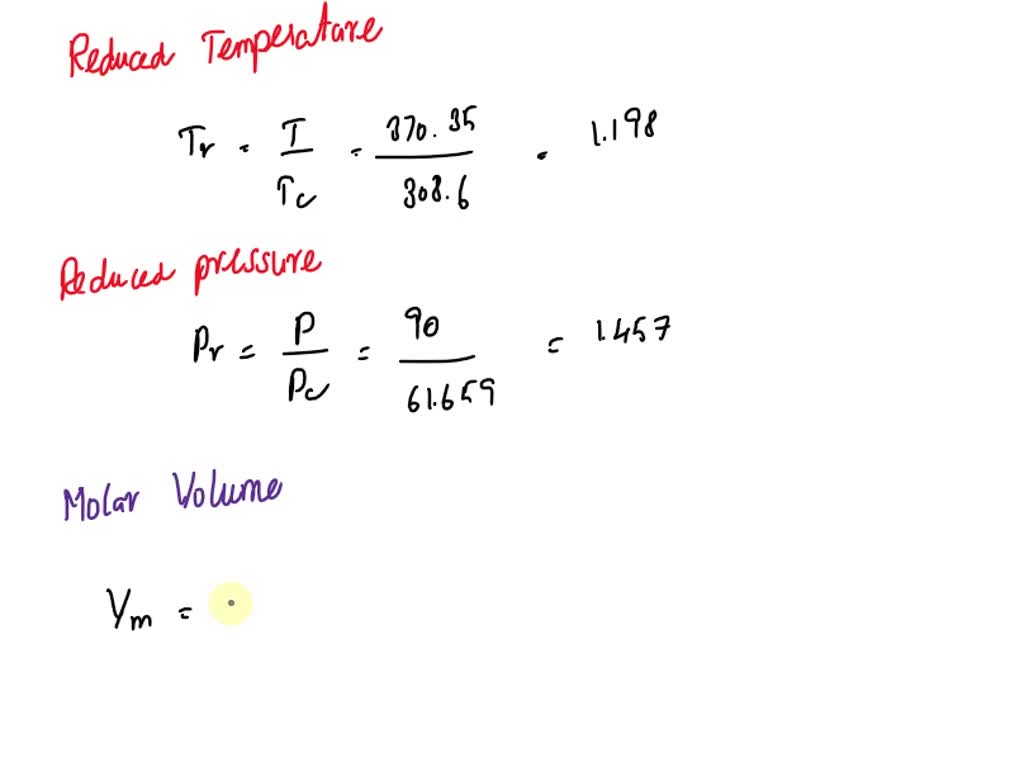 Reduced Temperature
Tr = T / Tc = 370.35 / 308.6 = 1.198
Reduced pressure
Pr = P / Pc = 90 / 61.659 = 1.457
Molar Volume
Vm =